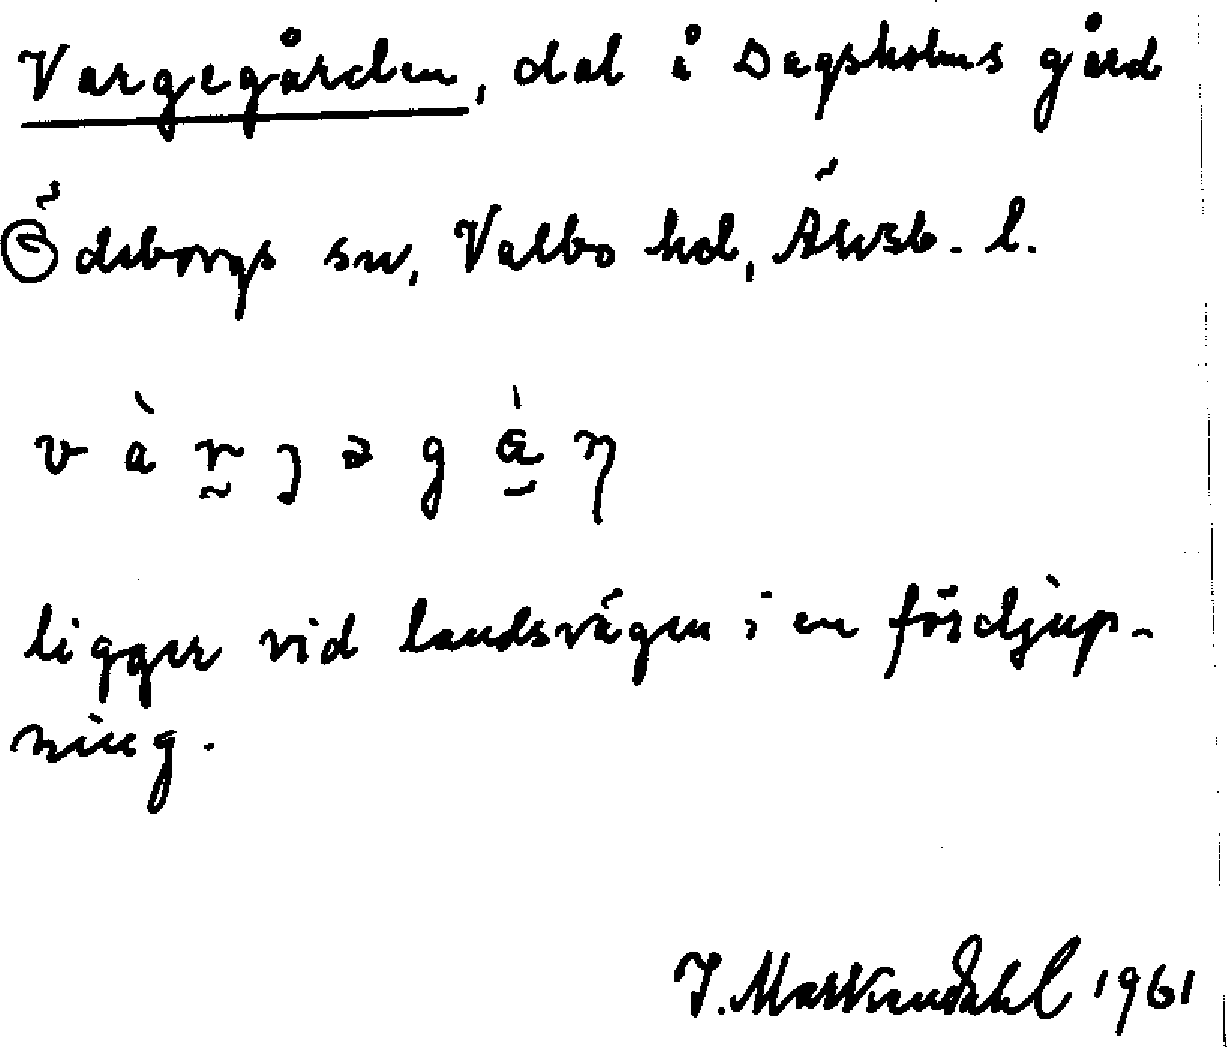 Vargegården, dal å Dagsholms gård
Ödsborgs sn, Valbo hd, Älvsb. l.
v à r ȷ ə g ǻ η
ligger vid landsvägen i en fördjup-
ning.
J. Markendahl 1961